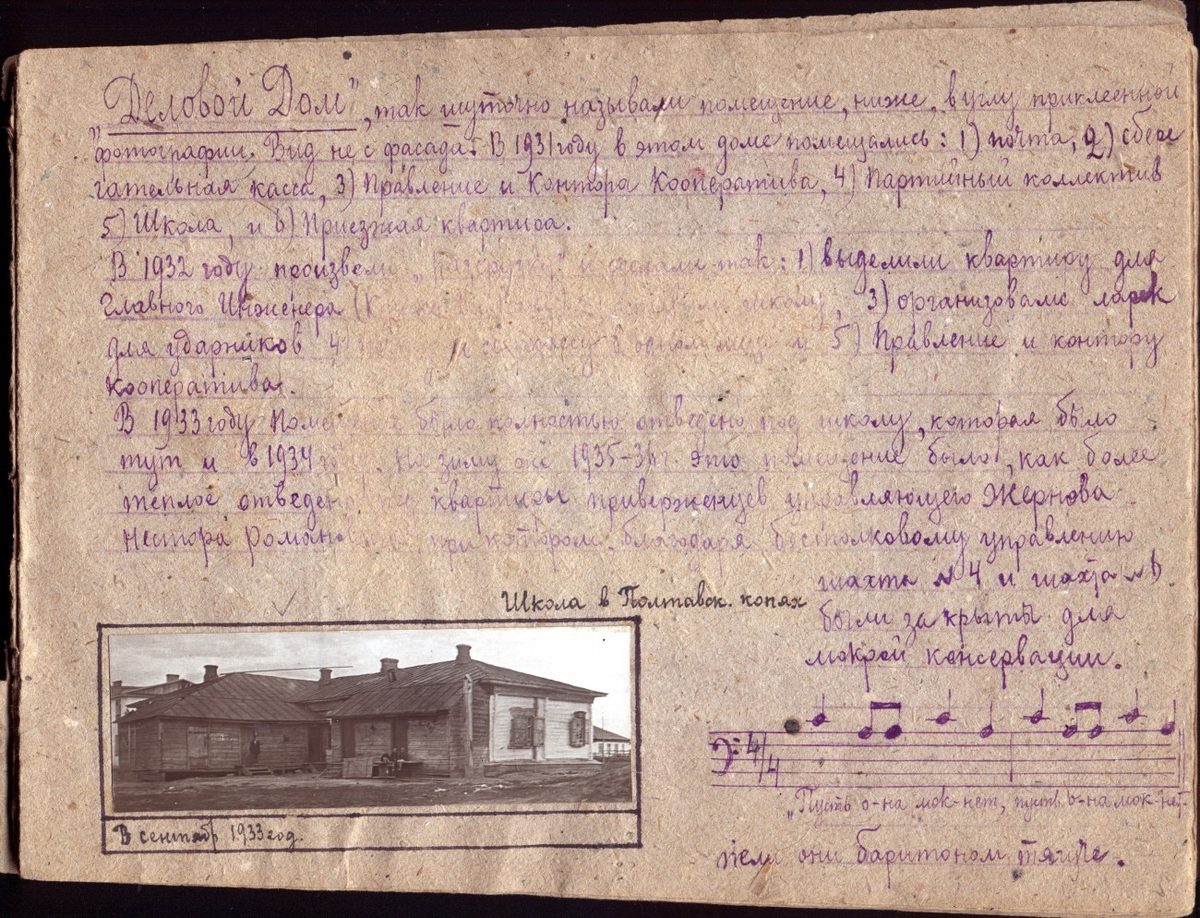 "Деловой Дом", так шуточно называли помещение, ниже, в углу приклеенной
фотографии. Вид не с фасада. В 1931 году в этом доме помещались: 1) почта, 2) сбере
гательная касса, 3) Правление и Контора Кооператива, 4) Партийный коллектив
5) Школа, и 6) Приезжая квартира.
В 1932 году произвели и сделали так: 1) выделили квартиру для
Главного Инженера школу, 3) организовали ларек
для ударников 4 и 5) Правление и контору
кооператива.
В 1933 году было полностью отведено под школу, которая была
тут и в 1934 году. На зиму же 1935-36 г. это помещение было, как более
теплое отведено квартиры приверженцев управляющего Жернова
Нестора при котором, благодаря, бестолковому управлению
шахта №4 и шахта
были закрыты для
мокрой консервации.
Школа в Полтавск. копях
В сентябр 1933 год.
4/4
"Пусть о-на мок-нет, пусть о-на мок-нет-
пели они баритоном, тягуче.